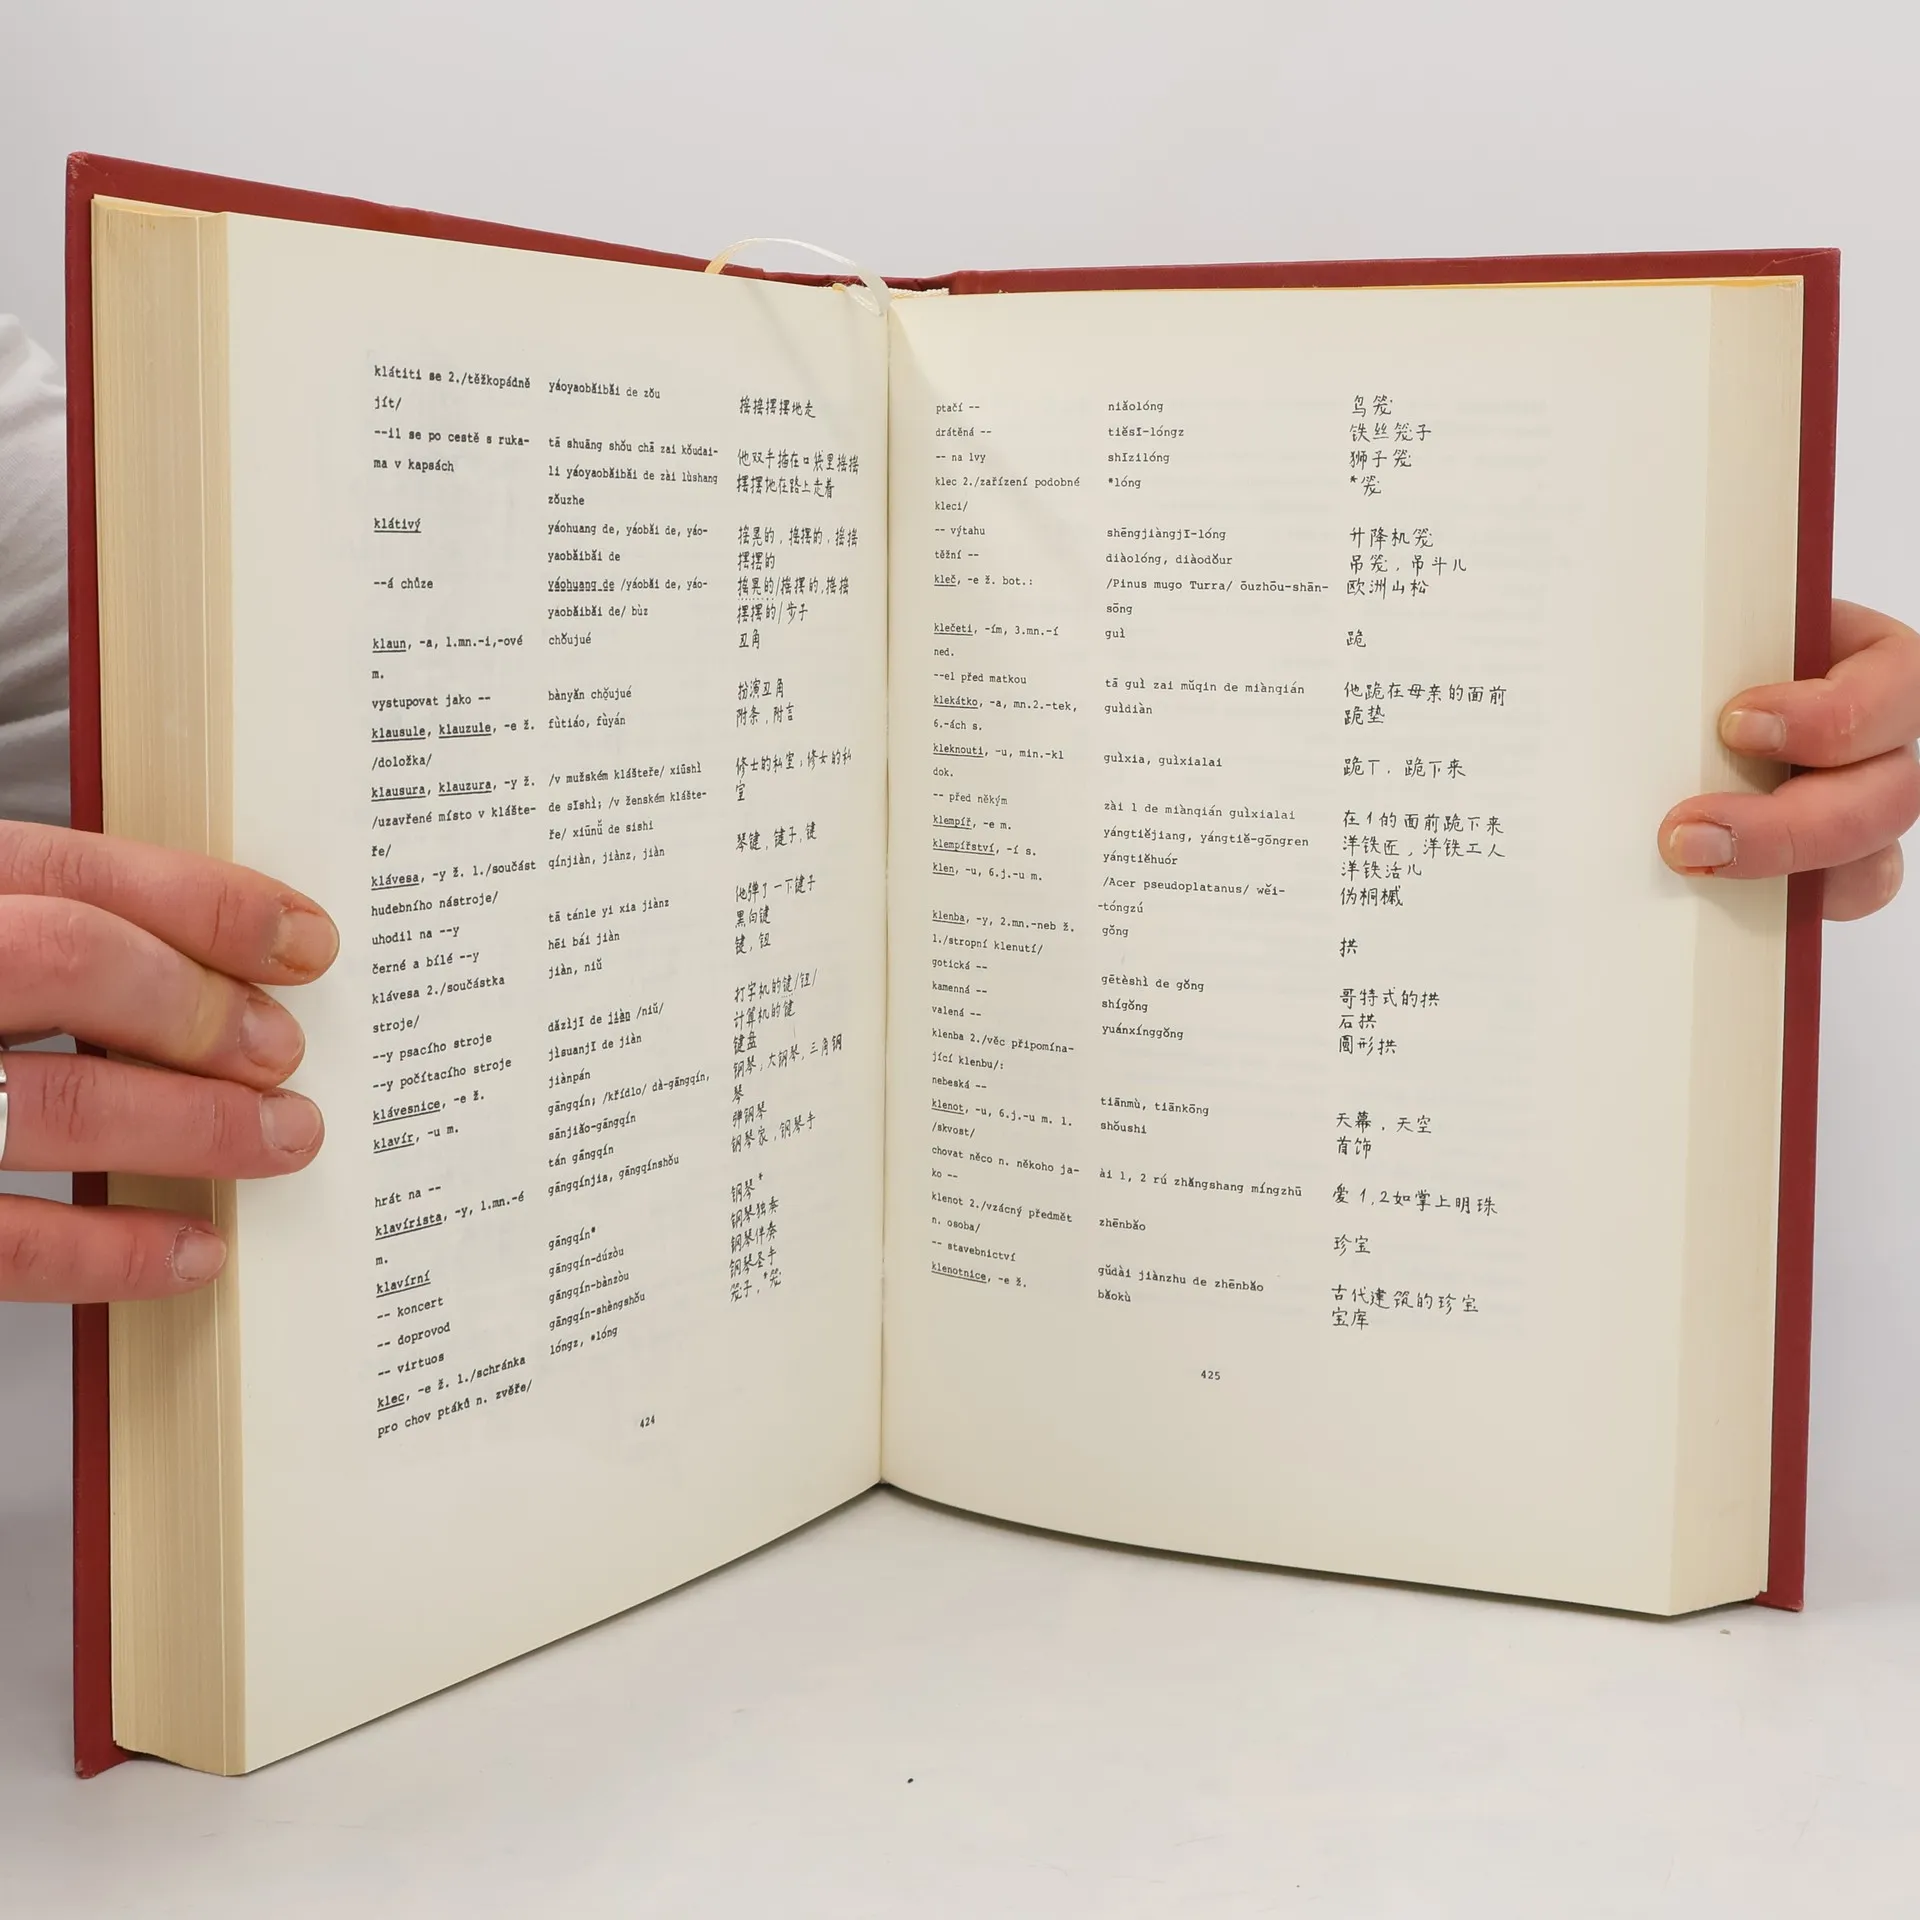 klátiti se 2./těžkopádně yáoyaobǎibǎi de zǒu 摇摇摆摆地走
jít/
--il se po cestě s ruka- tā shuāng shǒu chā zai kǒudai- 他双手插在口袋里摇摇
ma v kapsách li yáoyaobǎibǎi de zài lùshang 摆摆地在路上走着
zǒuzhe
klátivý yáohuang de, yáobǎi de, yáo- 摇晃的，摇摆的，摇摇
yaobǎibǎi de 摆摆的
--á chůze yáohuang de /yáobǎi de, yáo- 摇晃的/摇摆的,摇摇
yaobǎibǎi de/ bùz 摆摆的/步子
klaun, -a, 1.mn.-i,-ové chǒujué 丑角
m.
vystupovat jako -- bànyǎn chǒujué 扮演丑角
klausule, klauzule, -e ž. fùtiáo, fùyán 附条，附言
/doložka/
klausura, klauzura, -y ž. /v mužském klášteře/ xiūshì 修士的私室；修女的私
/uzavřené místo v klášte- de sīshì; /v ženském klášte- 室
ře/ ře/ xiūnǚ de sishi
klávesa, -y ž. 1./součást qínjiàn, jiànz, jiàn 琴键，键子，键
hudebního nástroje/
uhodil na --y tā tánle yi xia jiànz 他弹了一下键子
černé a bílé --y hēi bái jiàn 黑白键
klávesa 2./součástka jiàn, niǔ 键，钮
stroje/
--y psacího stroje dǎzìjī de jiàn /niǔ/ 打字机的键/钮/
--y počítacího stroje jìsuanjī de jiàn 计算机的键
klávesnice, -e ž. jiànpán 键盘
klavír, -u m. gāngqín; /křídlo/ dà-gāngqín, 钢琴；大钢琴，三角钢
sānjiǎo-gāngqín 琴
hrát na -- tán gāngqín 弹钢琴
klavírista, -y, 1.mn.-é gāngqínjia, gāngqínshǒu 钢琴家，钢琴手
m.
klavírní gāngqín* 钢琴*
-- koncert gāngqín-dúzòu 钢琴独奏
-- doprovod gāngqín-bànzòu 钢琴伴奏
-- virtuos gāngqín-shèngshǒu 钢琴圣手
klec, -e ž. 1./schránka lóngz, *lóng 笼子，*笼
pro chov ptáků n. zvěře/
424
ptačí -- niǎolóng 鸟笼
drátěná -- tiěsī-lóngz 铁丝笼子
-- na lvy shīzilóng 狮子笼
klec 2./zařízení podobné *lóng *笼
kleci/
-- výtahu shēngjiàngjī-lóng 升降机笼
těžní -- diàolóng, diàodǒur 吊笼，吊斗儿
kleč, -e ž. bot.: /Pinus mugo Turra/ ōuzhōu-shān- 欧洲山松
sōng
klečeti, -ím, 3.mn.-í guì 跪
ned.
--el před matkou tā guì zai mǔqin de miànqián 他跪在母亲的面前
klekátko, -a, mn.2.-tek, guìdiàn 跪垫
6.-ách s.
kleknouti, -u, min.-kl guìxia, guìxialai 跪下，跪下来
dok.
-- před někým zài 1 de miànqián guìxialai 在1的面前跪下来
klempíř, -e m. yángtiějiang, yángtiě-gōngren 洋铁匠，洋铁工人
klempířství, -í s. yángtiěhuór 洋铁活儿
klen, -u, 6.j.-u m. /Acer pseudoplatanus/ wěi- 伪桐槭
-tóngzú
klenba, -y, 2.mn.-neb ž. gǒng 拱
1./stropní klenutí/
gotická -- gētèshì de gǒng 哥特式的拱
kamenná -- shígǒng 石拱
valená -- yuánxínggǒng 圆形拱
klenba 2./věc připomína-
jící klenbu/:
nebeská -- tiānmù, tiānkōng 天幕，天空
klenot, -u, 6.j.-u m. 1. shǒushi 首饰
/skvost/
chovat něco n. někoho ja- ài 1, 2 rú zhǎngshang míngzhū 爱1,2如掌上明珠
ko --
klenot 2./vzácný předmět zhēnbǎo 珍宝
n. osoba/
-- stavebnictví gǔdài jiànzhu de zhēnbǎo 古代建筑的珍宝
klenotnice, -e ž. bǎokù 宝库
425